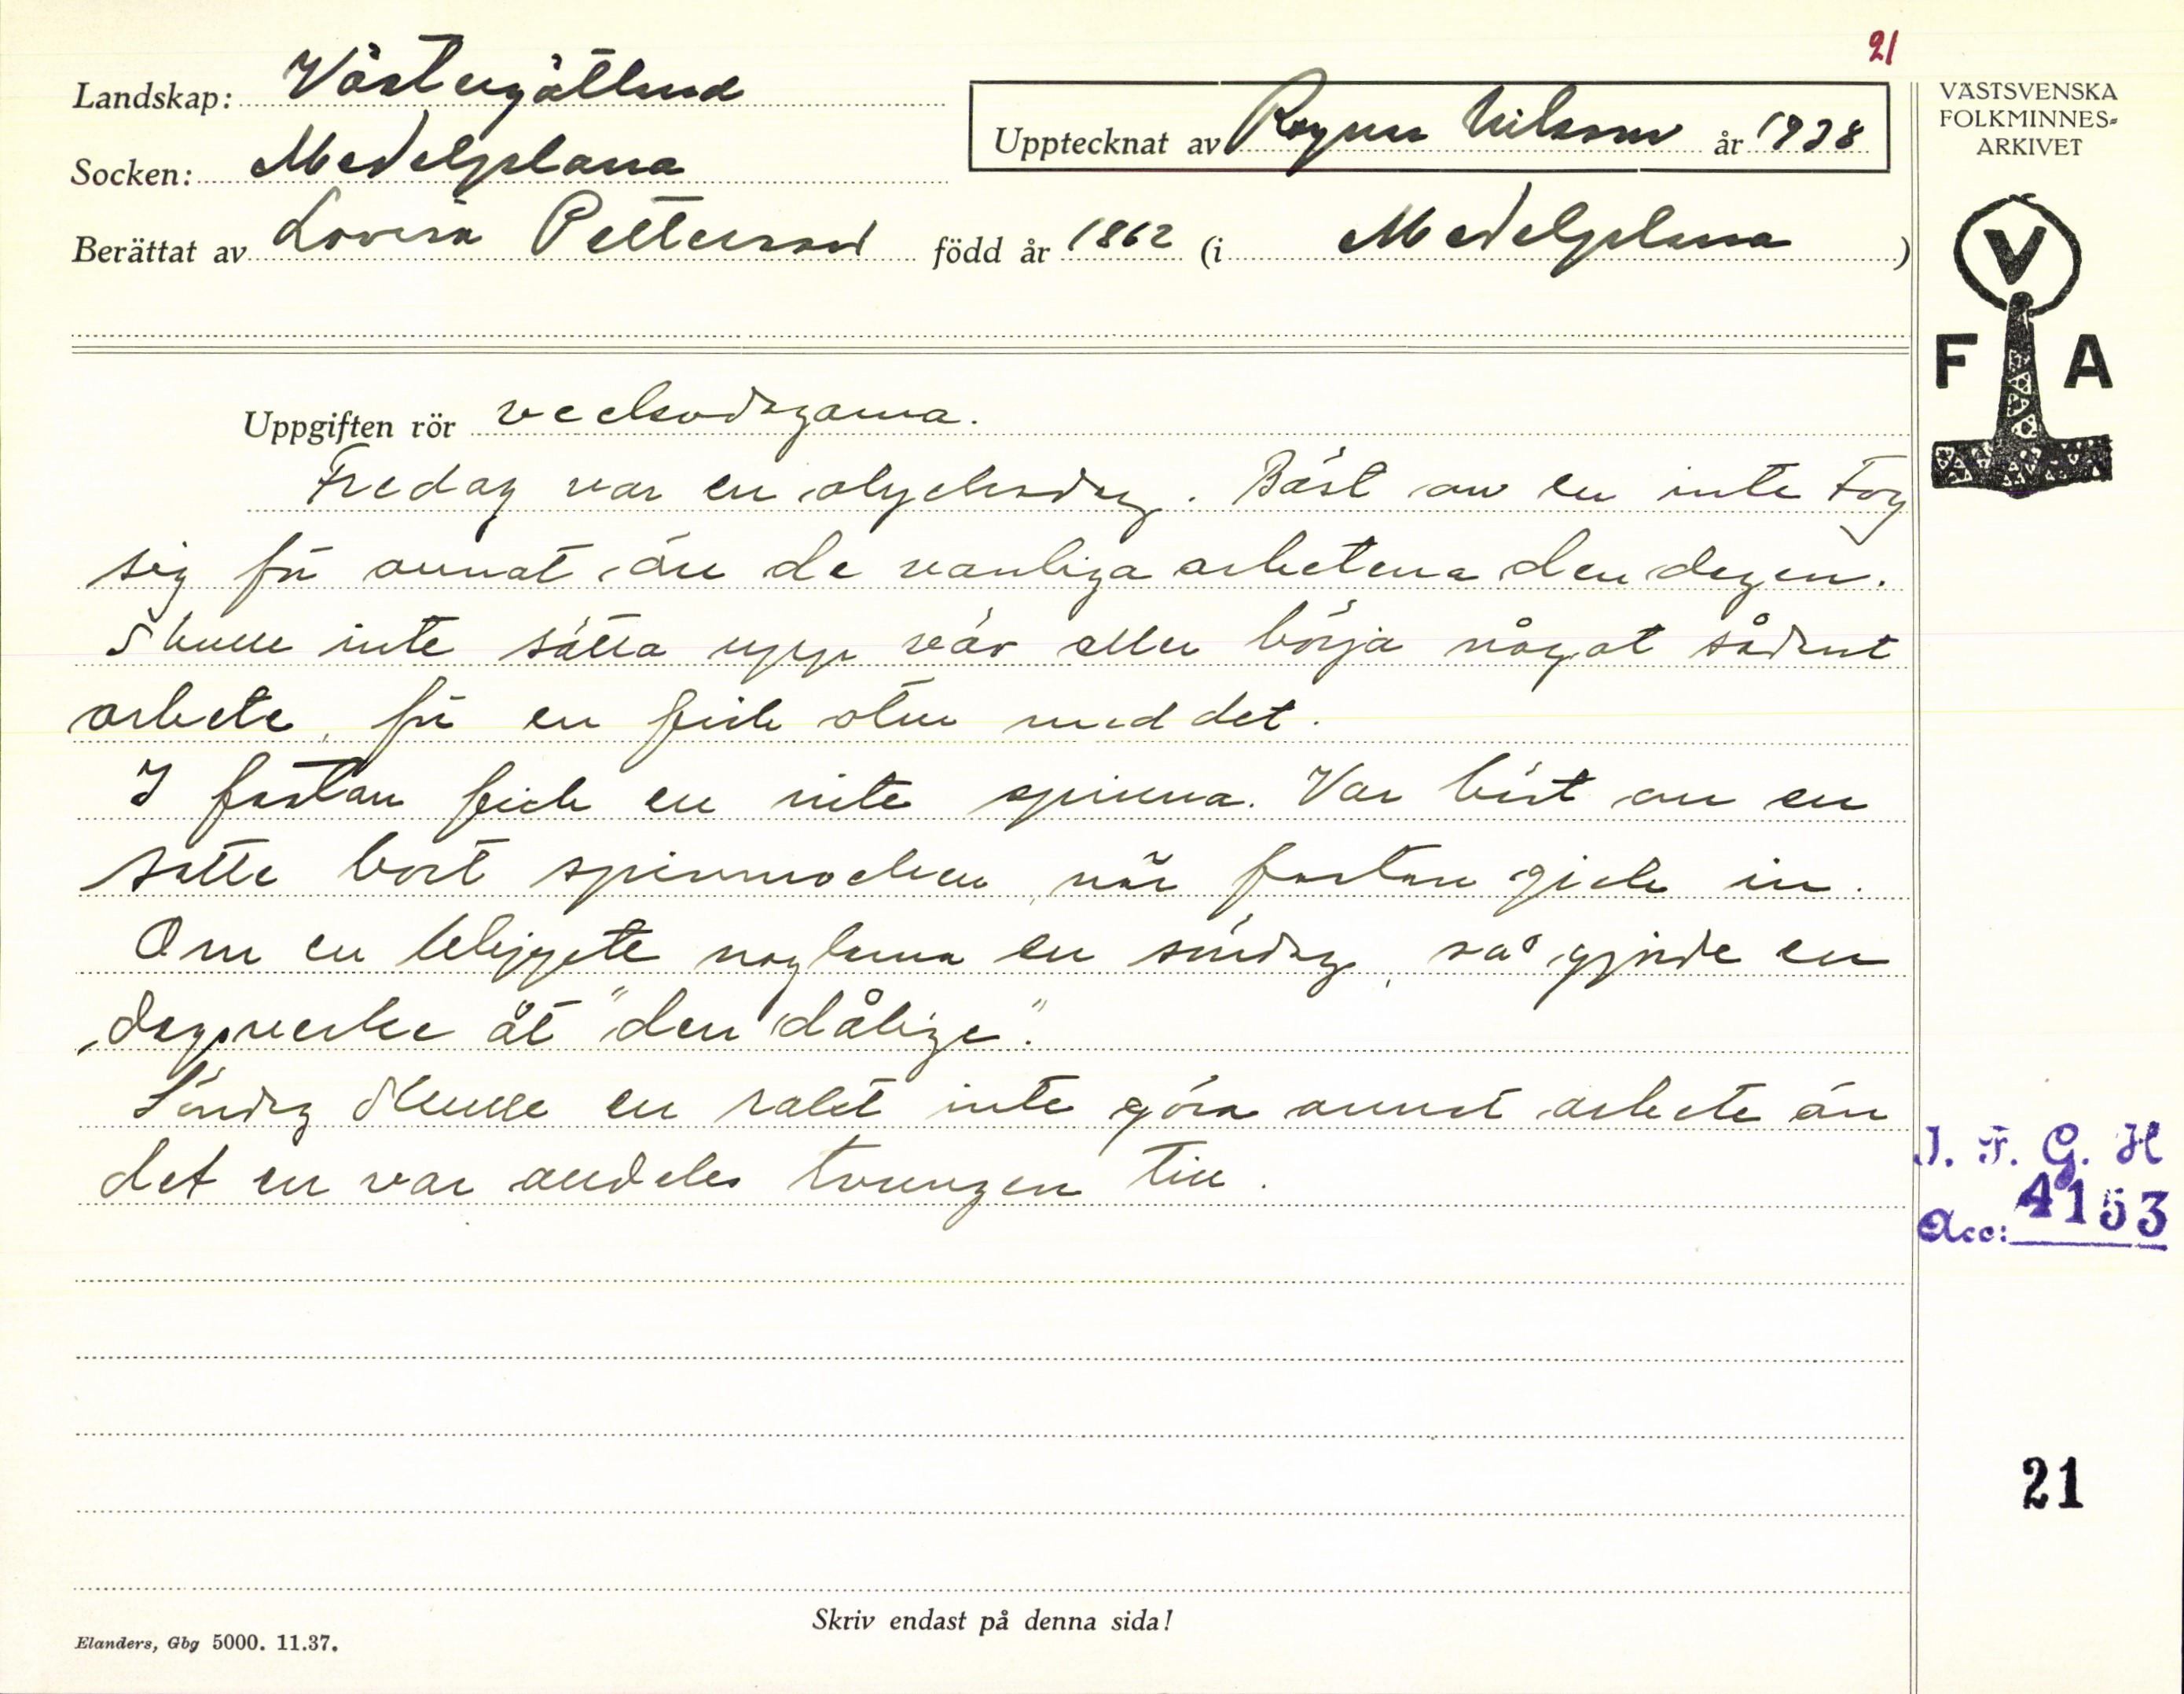 21
Landskap: Västergötland
Socken: Medelplana
Upptecknat av Ragnar Nilsson år 1938
Berättat av Lovisa Petterson född år 1862 (i Medelplana )
VÄSTSVENSKA
FOLKMINNES=
ARKIVET
V
F A
Uppgiften rör veckodagarna.
Fredag var en olycksdag. Bäst om en inte tog
sig för annat än de vanliga arbetena den dagen.
Skulle inte sätta upp väv eller börja något sådant
arbete, för en fick otur med det.
I fastan fick en inte spinna. Var bäst om en
satte bort spinnrocken när fastan gick in.
Om en klippte naglarna en söndag, så gjorde en
dagsverke åt "den dålige".
Söndag skulle en rakt inte göra annat arbete än
det en var alldeles tvungen till.
I. F. G. H
Acc: 4153
21
Skriv endast på denna sida!
Elanders, Gbg 5000. 11.37.